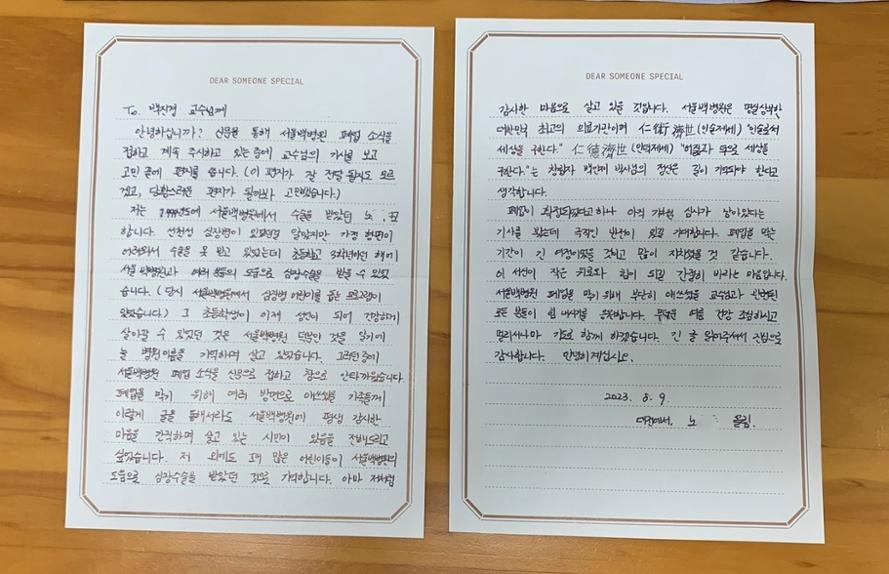 DEAR SOMEONE SPECIAL
To. 백진경 교수님께
안녕하십니까? 신문을 통해 서울백병원 폐업 소식을
접하고 계속 주시하고 있는 중에 교수님의 기사를 보고
고민 끝에 편지를 씁니다. (이 편지가 잘 전달 될지도 모르
겠고, 당황스러운 편지가 될까봐 고민했습니다.)
저는 서울백병원에서 수술을 받았던 노
합니다. 선천성 심장병이 있었던걸 알았지만 가정 형편이
어려워서 수술을 못 받고 있었는데 초등학교 3학년이던 해에
서울백병원과 여러 분들의 도움으로 심장수술을 받을 수 있었
습니다. (당시 서울백병원에서 심장병 어린이를 돕는 프로그램이
있었습니다.) 그 초등학생이 이제 성인이 되어 건강하게
살아갈 수 있었던 것은 서울백병원 덕분인 것을 알기에
늘 병원이름을 기억하며 살고 있었습니다. 그러던 중에
서울백병원 폐업 소식을 신문으로 접하고 참으로 안타까웠습니다
폐업을 막기 위해 여러 방면으로 애쓰시는 가족들께
이렇게 글을 통해서라도 서울백병원에 평생 감사한
마음을 간직하며 살고 있는 시민이 있음을 전해드리고
싶었습니다. 저 외에도 꽤 많은 어린이들이 서울백병원의
도움으로 심장수술을 받았던 것으로 기억합니다. 아마 저처럼
DEAR SOMEONE SPECIAL
감사한 마음으로 살고 있을 것입니다. 서울백병원은 명실상부한
대한민국 최고의 의료기관이며 仁術濟世(인술제세) "인술로써
세상을 구한다." 仁德濟世(인덕제세) "어짊과 덕으로 세상을
구한다."는 창립자 백인제 박사님의 정신은 길이 기억되야 한다고
생각합니다.
폐업이 확정되었다고 하나 아직 가처분 심사가 남아있다는
기사를 봤는데 극적인 반전이 있길 기대합니다. 폐업을 막는
기간이 긴 여정이었을 것이고 많이 지치셨을 것 같습니다.
이 서신이 작은 위로와 힘이 되길 간절히 바라는 마음입니다.
서울백병원 폐업을 막기 위해 부단히 애쓰셨을 교수님과 관련된
모든 분들이 힘 내시길 응원합니다. 무더운 여름 건강 조심하시고
멀리서나마 기도로 함께 하겠습니다. 긴 글 읽어주셔서 진심으로
감사합니다. 안녕히계십시오.
2023. 8. 9.
대전에서, 노 올림.